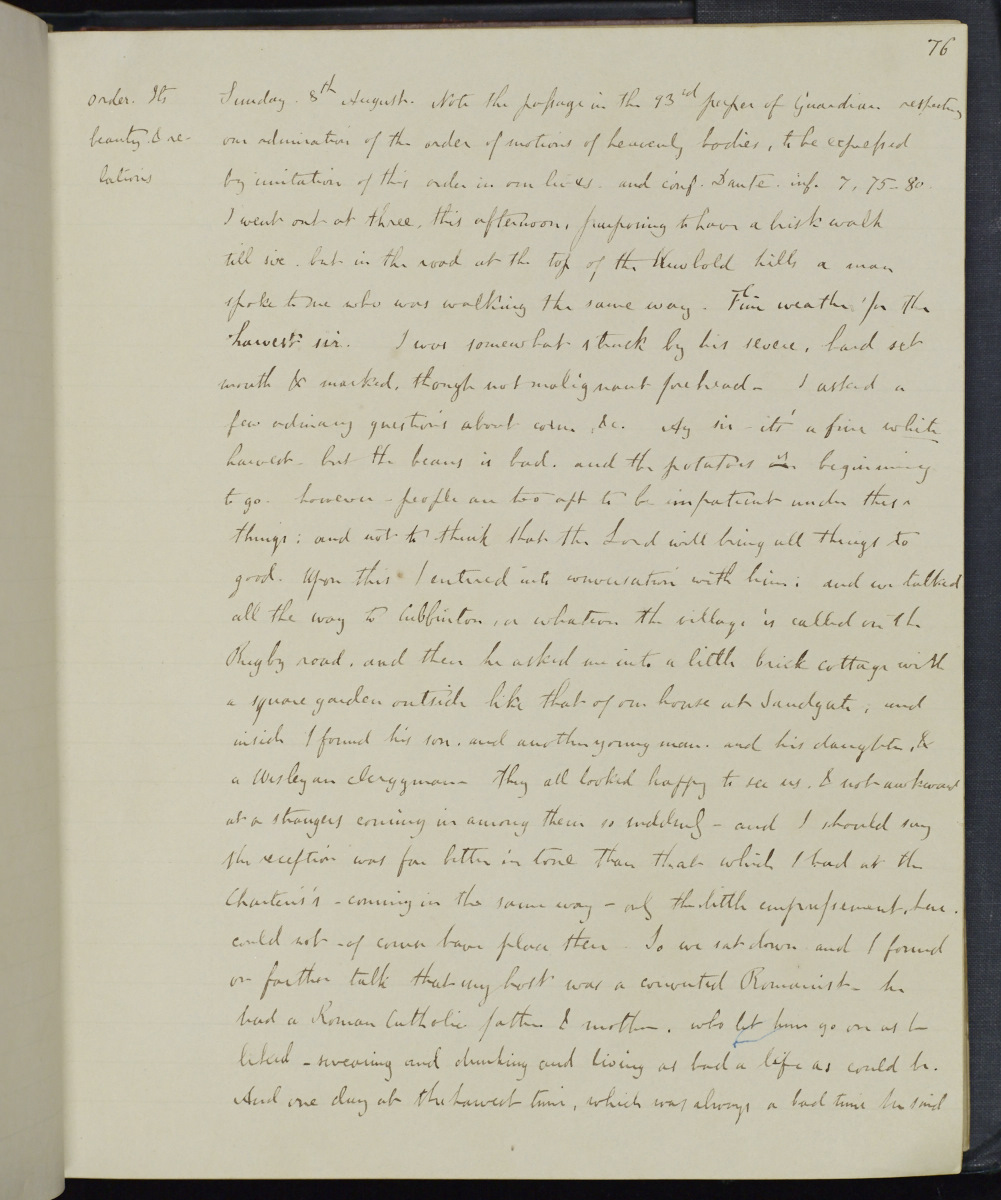 76
order. Its
beauty. & re-
lations
Sunday. 8th August. Note the passage in the 93rd paper of Guardian respecting
our admiration of the order of motions of heavenly bodies, to be expressed
by imitation of this order in our lives. and conf. Dante. inf. 7, 75-80.
I went out at three, this afternoon, purposing to have a brisk walk
till six. but in the road at the top of the Newbold hills a man
spoke to me who was walking the same way. Fine weather for the
harvest sir. I was somewhat struck by his severe, hard set
mouth & marked, though not malignant forehead - I asked a
few ordinary questions about corn, &c. Ay sir - its a fine white
harvest - but the beans is bad. and the potatoes is beginning
to go. however - people are too apt to be impatient under these
things; and not to think that the Lord will bring all things to
good. Upon this I entered into conversation with him: and we talked
all the way to Cubbinton, or whatever the village is called on the
Rugby road, and then he asked me into a little brick cottage with
a square garden outside like that of our house at Sandgate, and
inside I found his son. and another young man. and his daughter, &
a Wesleyan clergyman - they all looked happy to see us, & not awkward
at a strangers coming in among them so suddenly - and I should say
the reception was far better in tone than that which I had at the
Charteris's - coming in the same way - only the little empressement, here.
could not - of course have place there. So we sat down and I found
on farther talk that my host was a converted Romanist - he
had a Roman Catholic father & mother, who let him go on as he
liked - swearing and drinking and living as bad a life as could be.
And one day at the harvest time, which was always a bad time he said